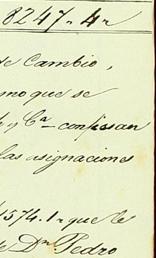 8247„4„
de Cambio,
mo que se
y Cª confiesan
las asignaciones
1574.1„ que le
de Dn Pedro